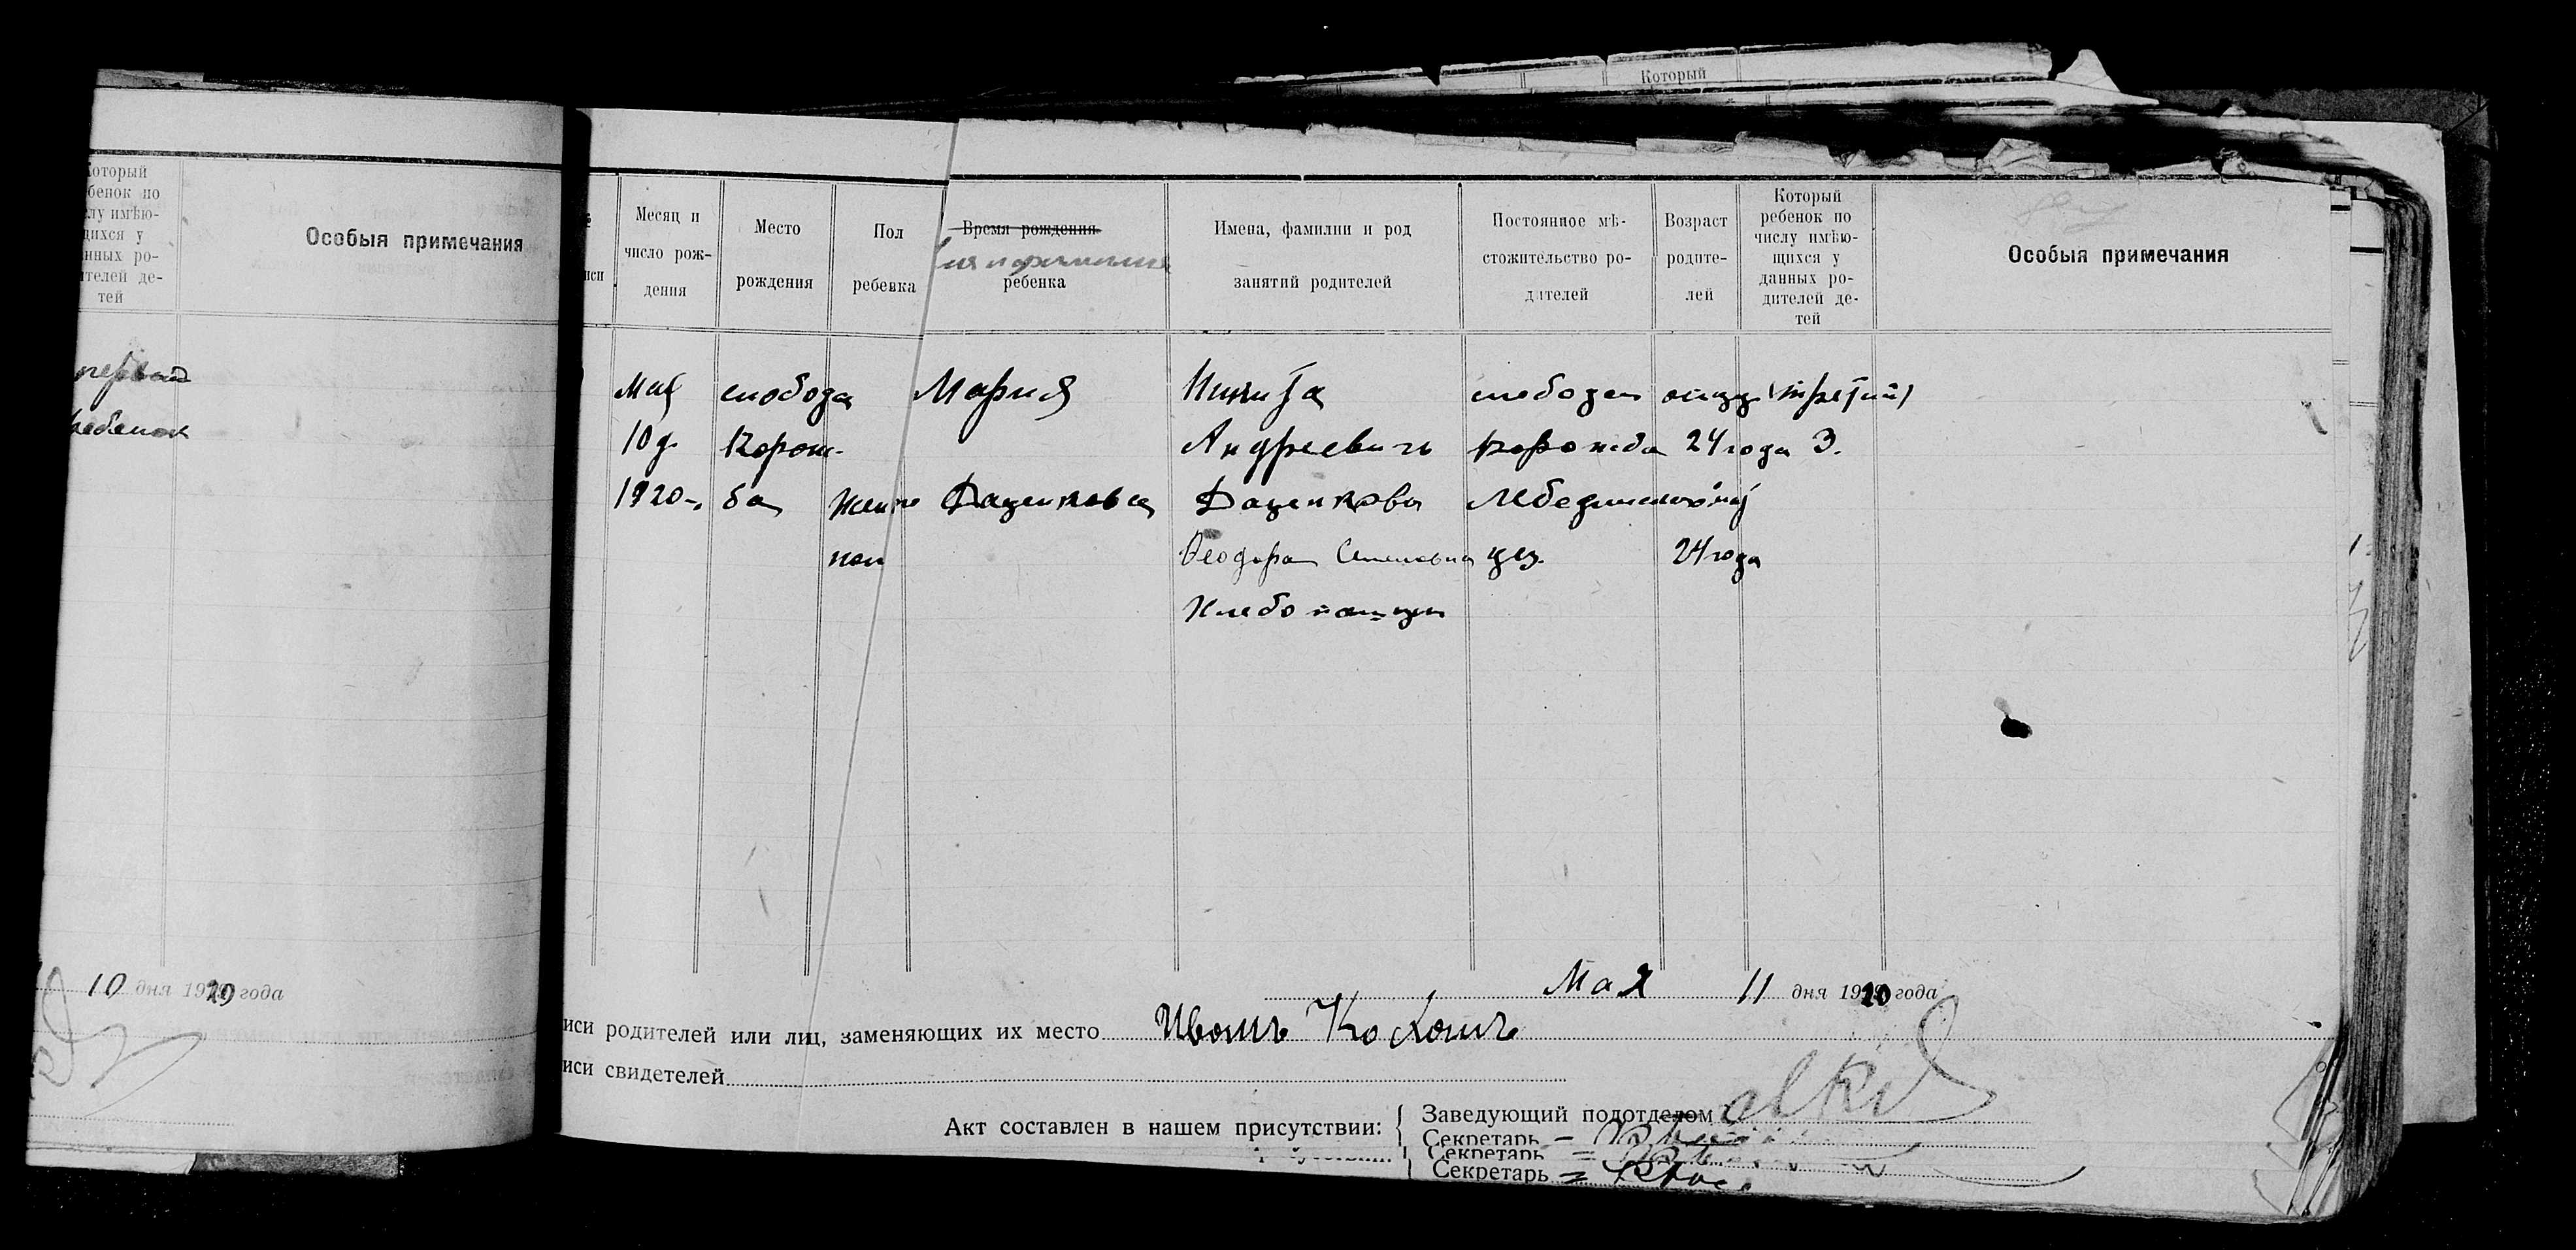 Который
Который
бенок по
лу имѣю-
щихся у
нных ро-
ителей де-
тей
Особыя примечания
первый
ребенок
10 дня 1920 года
иси
Месяц и
число рож-
дения
Место
рождения
Пол
ребенка
Время рождения
имя и фамилия
ребенка
Имена, фамилии и род
занятий родителей
Постоянное мѣ-
стожительство ро-
дителей
Возраст
родите-
лей
Который
ребенок по
числу имѣю-
щихся у
данных ро-
дителей де-
тей
Особыя примечания
Мая
10 д.
1920
слобода
Ворож-
ба
женск
пол
Мария
Даценкова
Никита
Андреевичъ
Даценкова
Феодора Семеновна
Хлебопашцы
слобода
Ворожба
Лебединской
уез.
отцу
24 года
24 года
(третий)
3.
Мая 11 дня 1920 года
иси родителей или лиц, заменяющих их место Иванъ
иси свидетелей
Акт составлен в нашем присутствии:
Заведующий подотделом
Секретарь
Секретарь
Секретарь